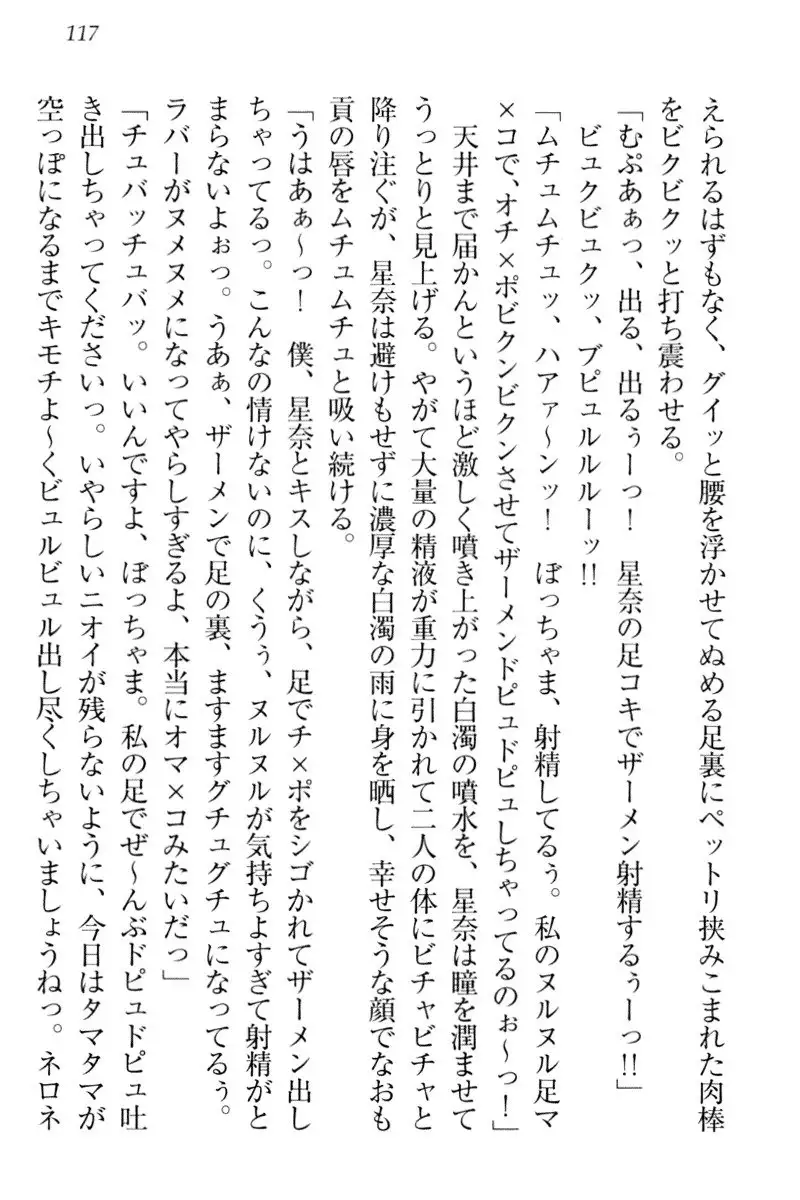 117
えられるはずもなく、グイッと腰を浮かせてぬめる足裏にペットリ挟みこまれた肉棒
をビクビクッと打ち震わせる。
「むぷあぁっ、出る、出るぅーっ！　星奈の足コキでザーメン射精するぅーっ!!」
ビュクビュクッ、ブピュルルルーッ!!
「ムチュムチュッ、ハアァ〜ンッ！　ぼっちゃま、射精してるぅ。私のヌルヌル足マ
×コで、オチ×ポビクンビクンさせてザーメンドピュドピュしちゃってるのぉ〜っ！」
天井まで届かんというほど激しく噴き上がった白濁の噴水を、星奈は瞳を潤ませて
うっとりと見上げる。やがて大量の精液が重力に引かれて二人の体にビチャビチャと
降り注ぐが、星奈は避けもせずに濃厚な白濁の雨に身を晒し、幸せそうな顔でなおも
貢の唇をムチュムチュと吸い続ける。
「うはあぁ〜っ！　僕、星奈とキスしながら、足でチ×ポをシゴかれてザーメン出し
ちゃってるっ。こんなの情けないのに、くうぅ、ヌルヌルが気持ちよすぎて射精がと
まらないよぉっ。うあぁ、ザーメンで足の裏、ますますグチュグチュになってるぅ。
ラバーがヌメヌメになってやらしすぎるよ、本当にオマ×コみたいだっ」
「チュバッチュバッ。いいんですよ、ぼっちゃま。私の足でぜ〜んぶドピュドピュ吐
き出しちゃってくださいっ。いやらしいニオイが残らないように、今日はタマタマが
空っぽになるまでキモチよ〜くビュルビュル出し尽くしちゃいましょうねっ。ネロネ